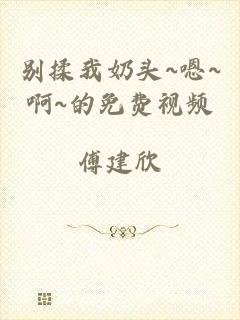 别揉我奶头~嗯~
啊~的免费视频
傅建欣